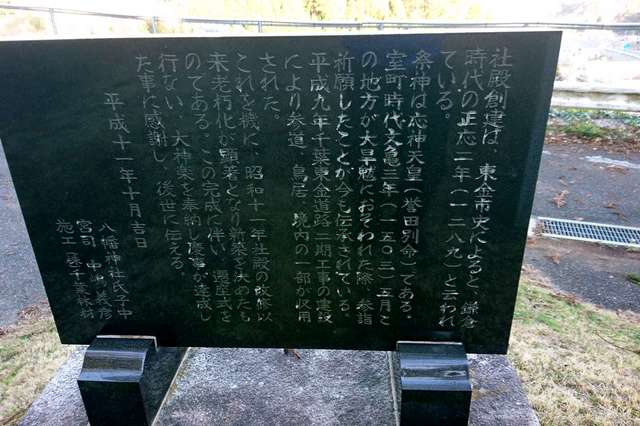 社殿創建は、東金市史によると、鎌倉
時代の正応二年（一二八九）と云われ
ている。
祭神は応神天皇（誉田別命）である。
室町時代文亀三年（一五〇三）五月こ
の地方が大旱魃におそわれた際、参詣
祈願したことが今も伝承されている。
平成九年千葉東金道路二期工事の建設
により参道、鳥居、境内の一部が収用
された。
これを機に、昭和十一年社殿の改修以
来老朽化が顕著となり新築を決めたも
のである。この完成に伴い、遷座式を
行ない、大神楽を奉納し慶事が達成し
た事に感謝し、後世に伝える。
平成十一年十月吉日
八幡神社氏子中
宮司 中
施工